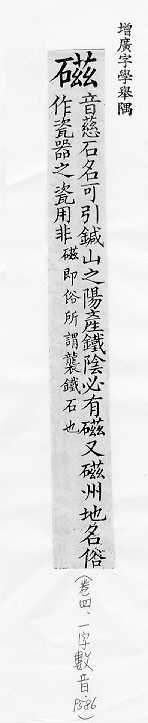 增廣字學舉隅
磁音慈石名可引鍼山之陽產鐵陰必有磁又磁州地名俗
作瓷器之瓷用非磁即俗所謂襲鐵石也
(卷四、一字數音 P586)